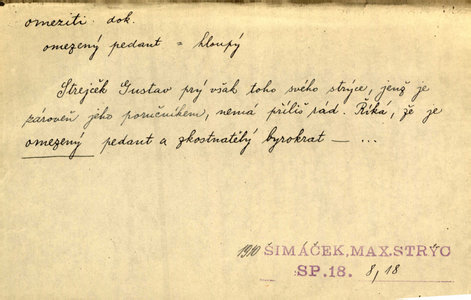 omeziti: dok.
omezený pedant = hloupý
Strejček Gustav prý však toho svého strýce, jenž je
zároveň jeho poručníkem, nemá příliš rád. Říká, že je
omezený pedant a zkostnatělý byrokrat — ...
1910 ŠIMÁČEK, MAX. STRÝC
SP. 18. 8, 18